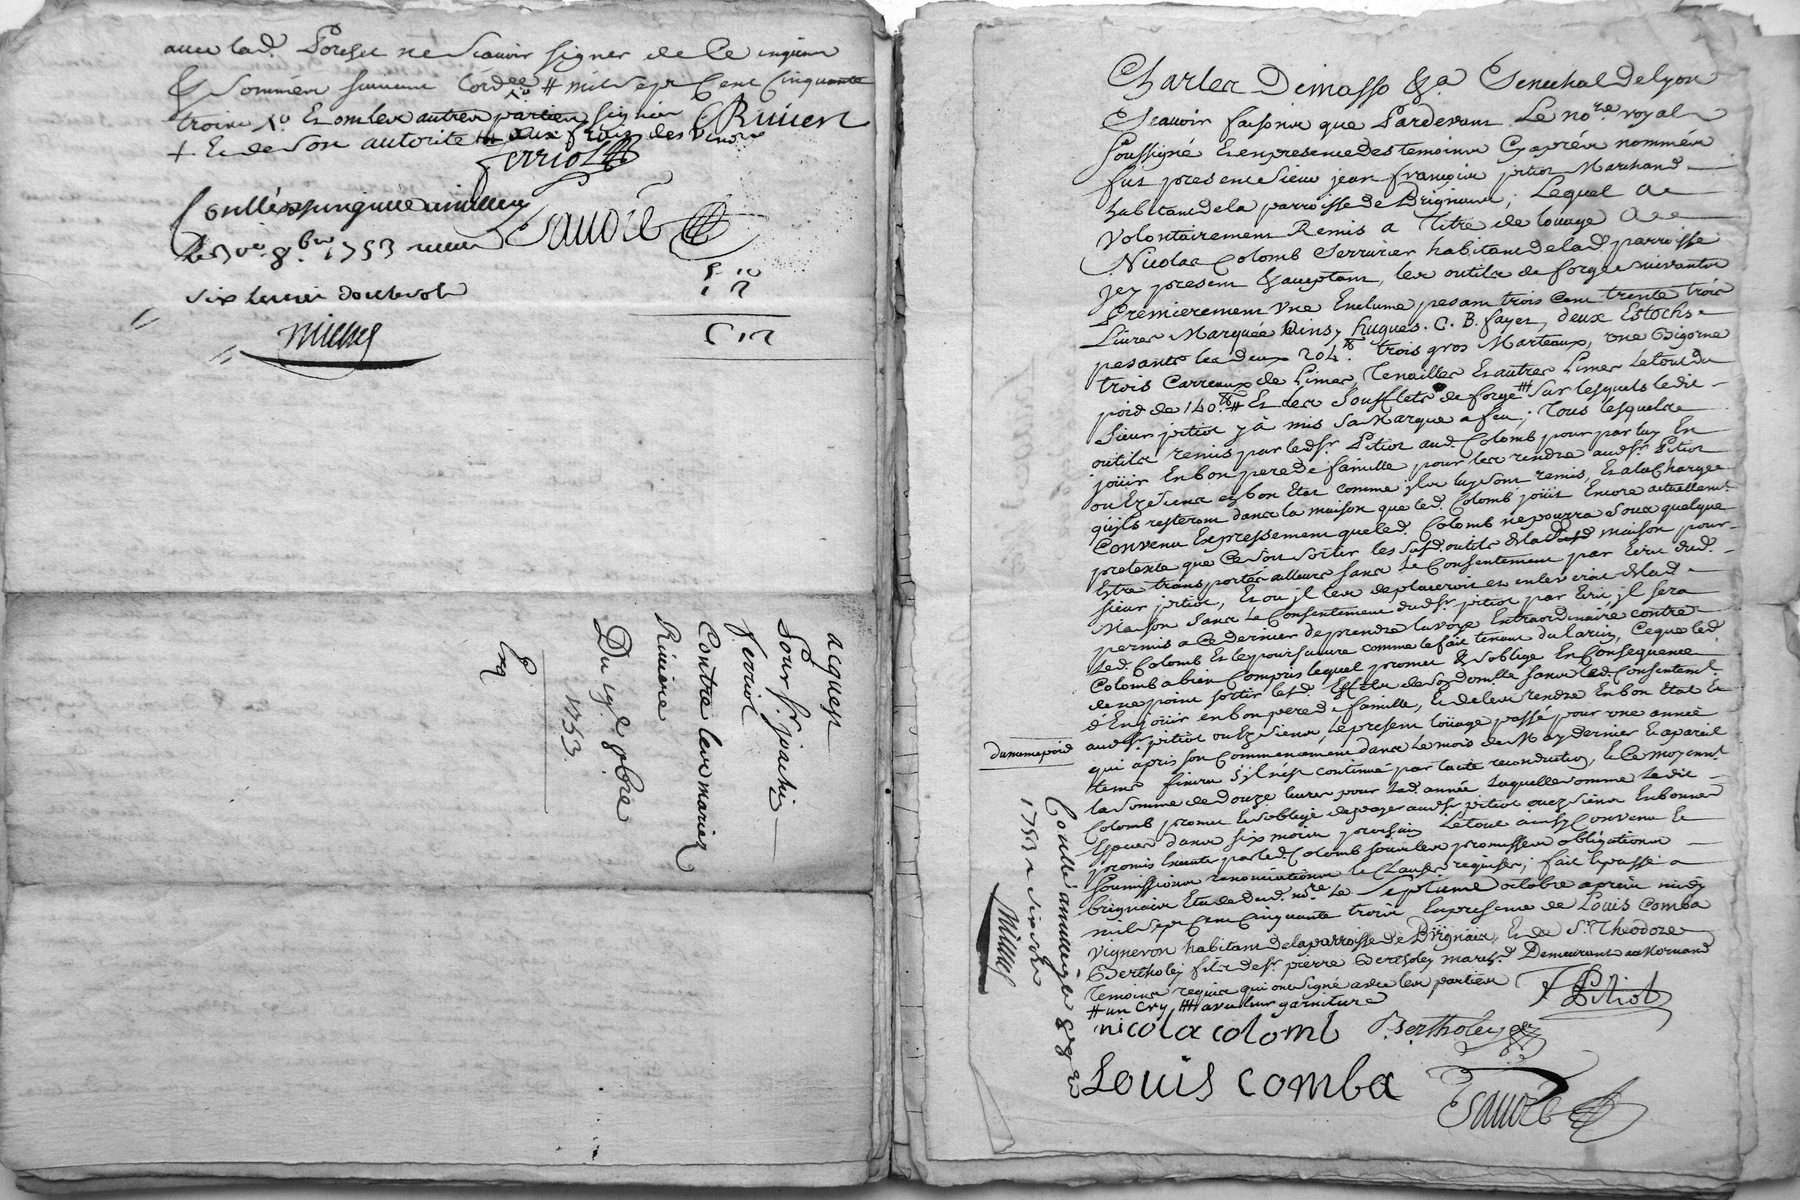 avec lad. Porchet ne scavoir signer de ce enquis
& sommés suivant l'ord.ee # mil sept cent cinquante
trois Xo et ont les autres parties signé CRivier
+ et de son autorité ## aux frais des
ferriol
Conllé a
Le 8bre 1753 reçu
Fauore
six livres douze sols
Michel
acquest
Pour Sr. joachi
ferriol
Contre les mariés
Riviere
Du 8bre
1753.
Exq
Charles Demasso &a Senechal de Lyon
Scavoir faisons que Pardevant Le nore. royal
soussigné et en presence des temoins cy après nommés
fut present sieur jean françois pitiot Marchand
habitant de la parroisse de Brignais, Lequel a
volontairement Remis a titre de louage a
Nicolas Colomb Serrurier habitant de lad. parroisse
jcy present & acceptant, les outils de forge suivants
Premierement une Enclume pesant trois cent trente trois
Livres Marquée hugues. C. B. fayet, deux Estochs
pesants les deux 204.tt trois gros Marteaux, une Bigorne
trois Carreaux de Limes, Tenailles et autres Limes Le tout du
poid de 140.tt # Et des Soufflets de forge ### sur lesquels ledit
Sieur pitiot y à mis sa Marque a feu; Tous lesquels
outils remis par led. Sr. Pitiot aud. Colomb pour par luy En
joüir En bon pere de famille pour les rendre aud. Sr. Pitiot
ou aux siens en bon Etat comme jls luy sont remis, Et à la Charge
qu'jls resteront dans la maison que led. Colomb joüit Encore actuellemt.
Convenu Expressement que led. Colomb ne pourra sous quelque
pretexte que Ce soit sortir les susd. outils de lad. maison pour
Estre transportés ailleurs sans Le Consentement par Ecrit dud.
sieur pitiot, Et ou jl les deplaceroit et enleveroit de lad.
Maison sans Le Consentement dud. Sr. pitiot par Ecrit jl sera
permis a ce dernier de prendre la voye Extraordinaire contre
led. Colomb Et le poursuivre comme le fait tenant du larcin, Ce que led.
Colomb a bien Compris lequel promet & s'oblige En Consequence
de ne point sortir lesd. Effets de son domicille sans led. Consentemt.
d'En joüir en bon pere de famille, Et de les rendre En bon Etat
aud. Sr. pitiot ou aux siens, Le present loüage passé pour une année
du meme poid
qui a pris son Commencement dans Le mois de May dernier Et a pareil
tems finira s'jl n'est continué par tacite reconduction, Et Ce moyennt.
la somme de douze livres pour lad. année Laquelle somme Ledit
Colomb promet Et s'oblige de payer aud. Sr. pitiot ou aux siens En bonnes
Especes dans six mois prochain Le tout ainsy Convenu Et
promis Executer par led. Colomb sous les promesses obligations
soumissions renonciations & Clauses requises; fait Et passé a
brignais Etude dud. nore Le septieme octobre après midy
mil sept Cent Cinquante trois En presence de Louis Comba
vigneron habitant de la parroisse de Brignais, Et de Sr. Theodoze
Bertholey fils de Sr. pierre Bertholey march.d Demeurant a Mornant
temoins requis qui ont signé avec les parties
# un Cry ### avec leur garniture
Pitiot
nicola colomb Bertholey
Louis comba
Fauore
Conllé a 8bre
1753 Reçu six sols
Michel